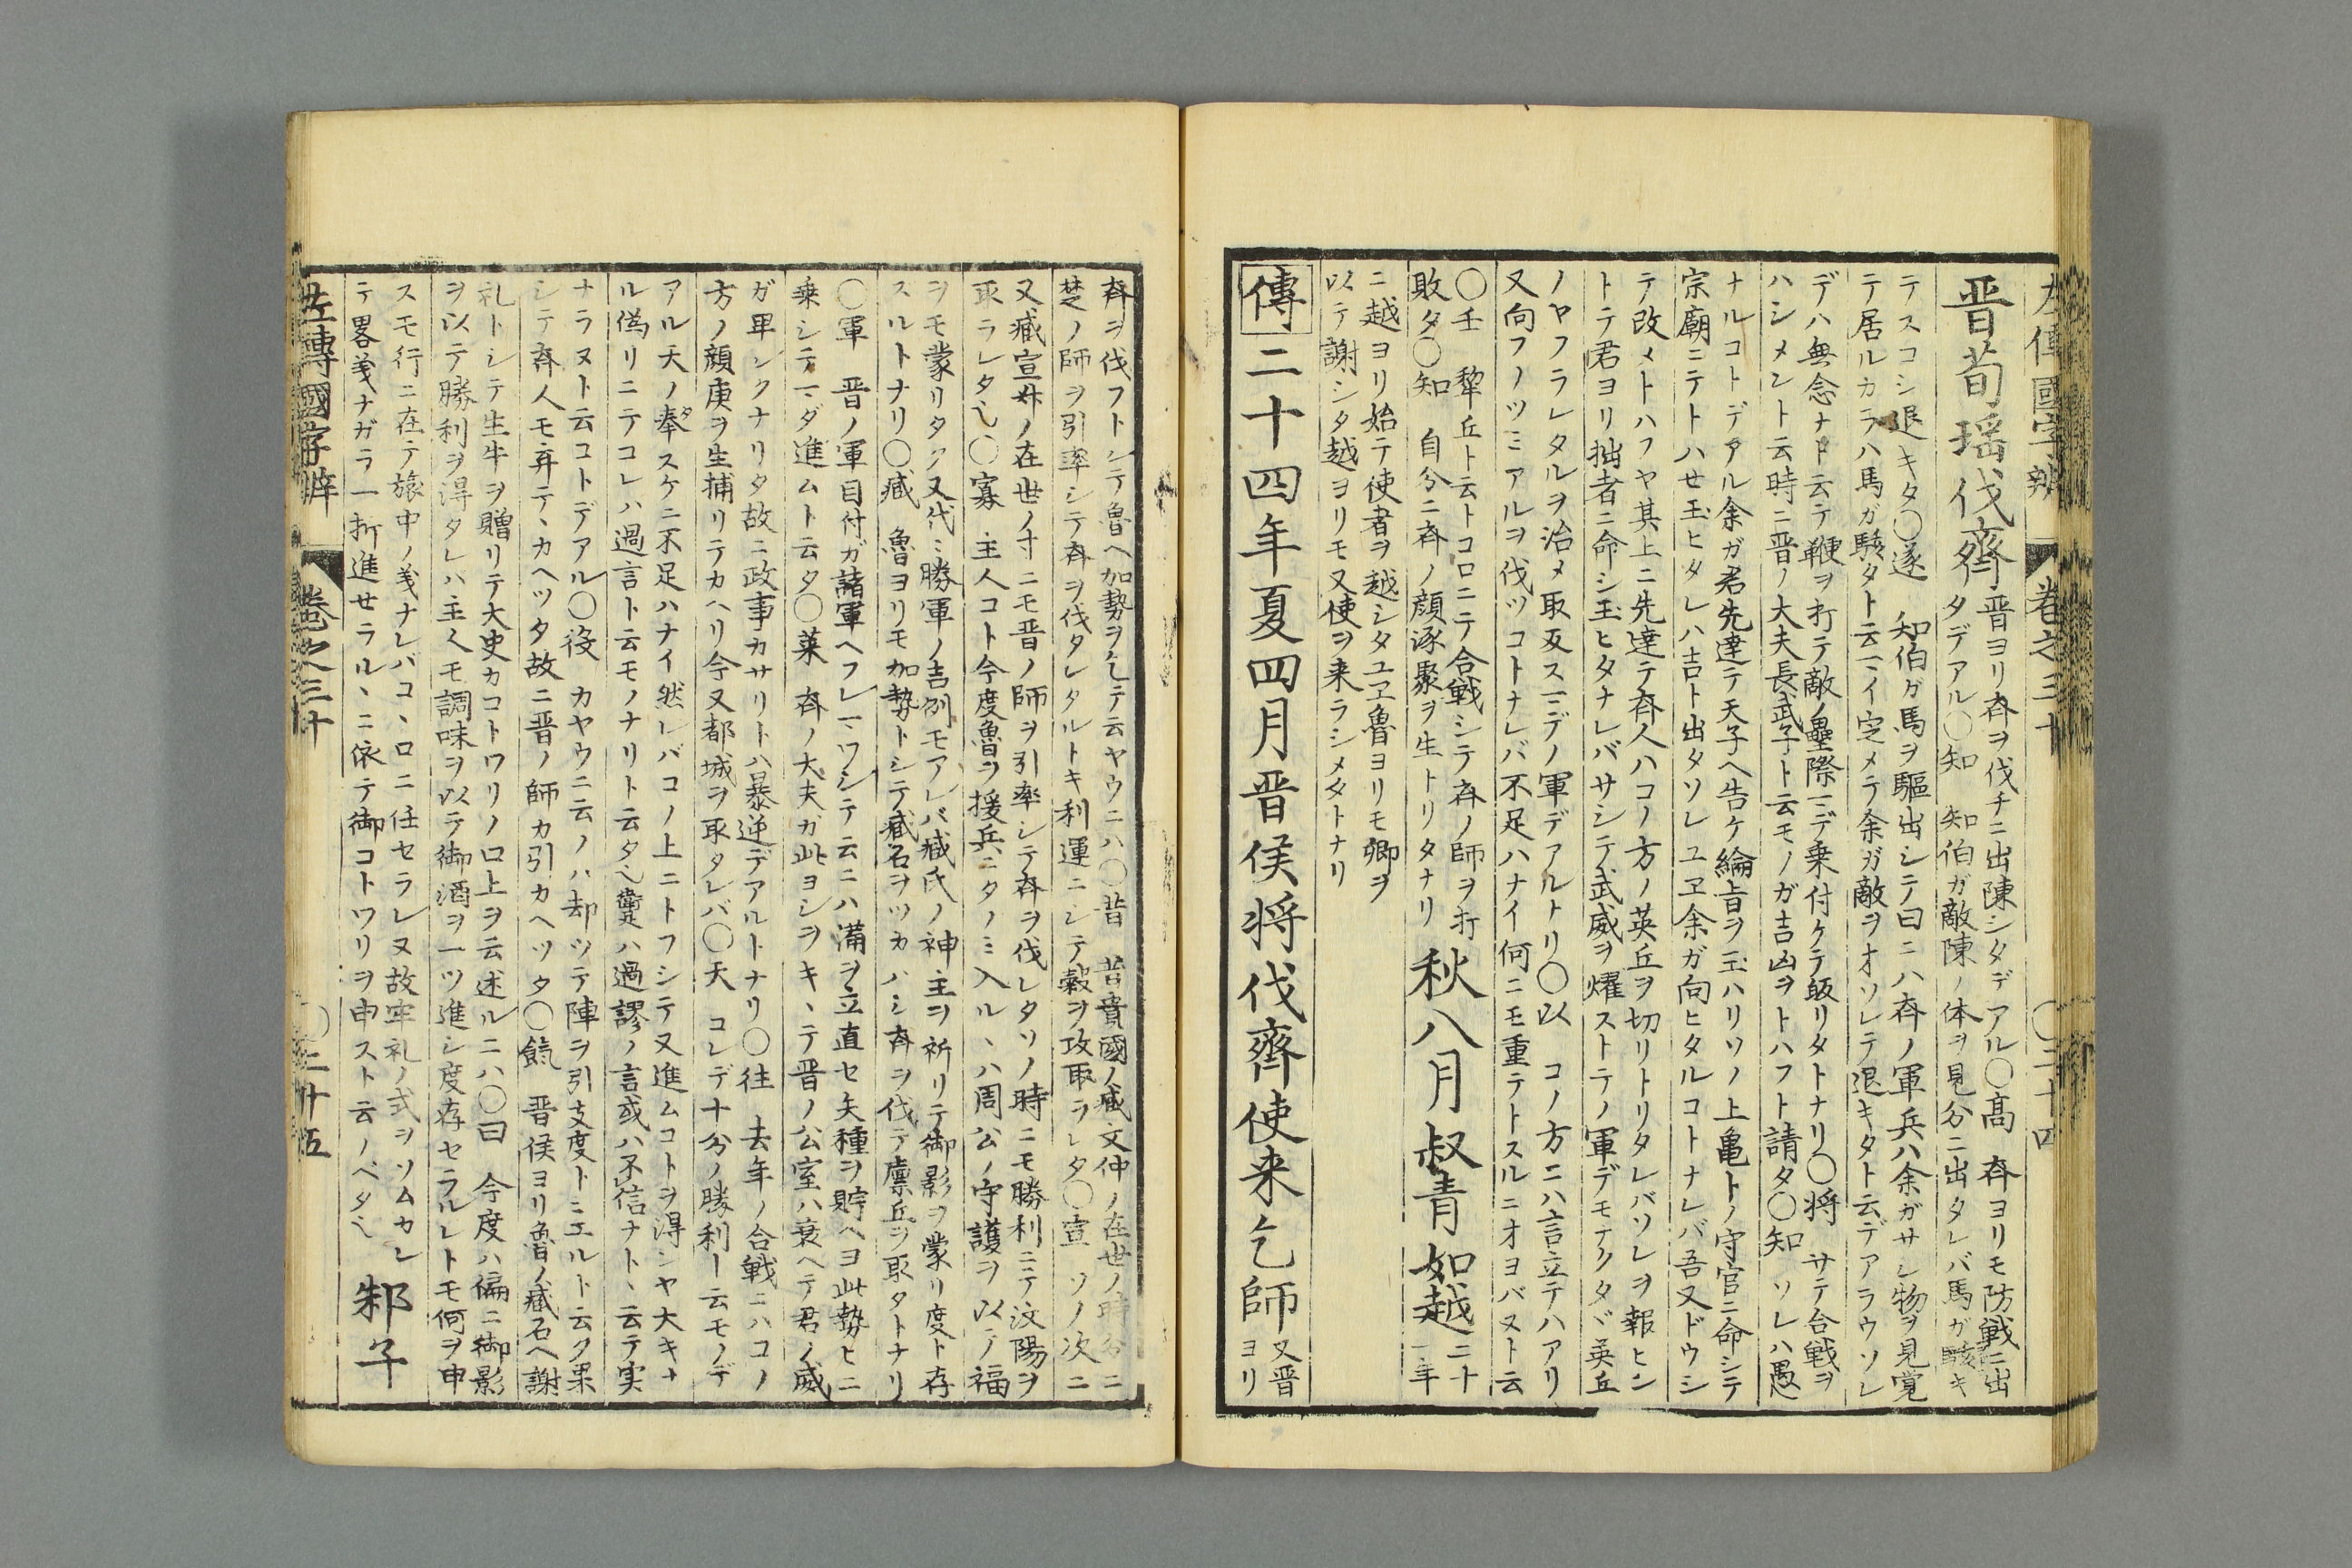 左傳國字辨 卷之三十 〇三十四
晋荀瑶伐齊
晋ヨリ斉ヲ伐チニ出陳シタデアル〇髙 斉ヨリモ防戦ニ出
タデアル〇知 知伯ガ敵陳ノ体ヲ見分ニ出タレバ馬ガ駭キ
テスコシ退キタ〇遂 知伯ガ馬ヲ驅出シテ曰ニハ斉ノ軍兵ハ余ガサシ物ヲ見覚
テ居ルカラハ馬ガ駭タト云イ定メテ余ガ敵ヲオソレテ退キタト云デアラウソレ
デハ無念ナト云テ鞭ヲ打テ敵ノ壘際デ乗付ケテ皈リタトナリ〇将 サテ合戦ヲ
ハシメント云時ニ晋ノ大夫長武子ト云モノガ吉凶ヲトハフト請タ〇知 ソレハ愚
ナルコトデアル余ガ君先達テ天子ヘ告ケ綸旨ヲ玉ハリソノ上亀トノ守官ニ命シテ
宗廟ニテトハセ玉ヒタレハ吉ト出タソレユヱ余ガ向ヒタルコトナレバ吾又ドウシ
テ改メトハフヤ其上ニ先達テ斉人ハコノ方ノ英丘ヲ切リトリタレバソレヲ報ヒン
トテ君ヨリ拙者ニ命シ玉ヒタナレバサシテ武威ヲ燿ストテノ軍デモナクタヾ英丘
ノヤフラレタルヲ治メ取返スデノ軍デアルトリ〇以 コノ方ニハ言立テハアリ
又向フノツミアルヲ伐ツコトナレバ不足ハナイ何ニモ重テトスルニオヨバヌト云
〇壬 犂丘ト云トコロニテ合戦シテ斉ノ師ヲ打
敗タ〇知 自分ニ斉ノ顔涿聚ヲ生トリタナリ
秋八月叔青如越
二十一年
ニ越ヨリ始テ使者ヲ越シタユヱ魯ヨリモ卿ヲ
以テ謝シタ越ヨリモ又使ヲ来ラシメタトナリ
傳二十四年夏四月晋侯将伐齊使来乞師
又晋ヨリ
斉ヲ伐フトシテ魯ヘ加勢ヲ乞テ云ヤウニハ〇昔 昔貴國ノ臧文仲ノ在世ノ時分ニ
楚ノ師ヲ引率シテ斉ヲ伐タレタルトキ利運ニシテ穀ヲ攻取ラレタ〇宣 ソノ次ニ
又臧宣叔ノ在世ノ寸ニモ晋ノ師ヲ引率シテ斉ヲ伐レタソノ時ニモ勝利ニテ汶陽ヲ
取ラレタ〇寡 主人コト今度魯ヲ援兵ニタノミ入ルヽハ周公ノ守護ヲ以テノ福
ヲモ蒙リタク又代ミ勝軍ノ吉例モアレバ臧氏ノ神主ヲ祈リテ御影ヲ蒙リ度ト存
スルトナリ〇臧 魯ヨリモ加勢トシテ臧石ヲツカハシ斉ヲ伐テ廪丘ヲ取タトナリ
〇軍 晋ノ軍目付ガ諸軍ヘフレワシテ云ニハ溝ヲ立直セ矢種ヲ貯ヘヨ此勢ヒニ
乗シテダ進ムト云タ〇莱 斉ノ大夫ガ此ヨシヲキヽテ晋ノ公室ハ衰ヘテ君ノ威
ガ畢シクナリタ故ニ政事カサリトハ暴逆デアルトナリ〇往 去年ノ合戦ニハコノ
方ノ顔庚ヲ生捕リテカヘリ今又都城ヲ取タレバ〇天 コレデ十分ノ勝利ト云モノデ
アル天ノ奉スケニ不足ハナイ然レバコノ上ニトフシテ又進ムコトヲ淂シヤ大キナ
ル偽リニテコレハ過言ト云モノナリト云タ躗ハ過謬ノ言或ハ不信ナトヽ云テ実
ナラヌト云コトデアル〇役 カヤウニ云ノハ却ツテ陣ヲ引支度トミエルト云ク果
シテ斉人モ弃テヽカヘツタ故ニ晋ノ師カ引カヘツタ〇餼 晋侯ヨリ魯ノ臧石ヘ謝
礼トシテ生牛ヲ贈リテ大史カコトワリノ口上ヲ云述ルニハ〇曰 今度ハ偏ニ御影
ヲ以テ勝利ヲ淂タレハ主人モ調味ヲ以テ御酒ヲ一ツ進シ度存セラルレトモ何ヲ申
スモ行ニ在テ旅中ノ義ナレバコヽロニ任セラレヌ故牢礼ノ式ヲソムカレ
テ畧義ナガラ一折進セラルヽニ依テ御コトワリヲ申スト云ノベタ
邾子
左傳國字辨 卷之三十 〇三十五